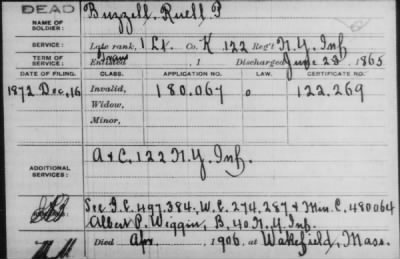 DEAD
NAME OF SOLDIER: Buzzell, Ruell P
SERVICE: Late rank, 1 Lt. Co. K 122 Reg't N.Y. Inf
TERM OF SERVICE: Enlisted , 1 Discharged June 23, 1865
DATE OF FILING. CLASS. APPLICATION NO. LAW. CERTIFICATE NO.
1872 Dec. 16 Invalid, 180.067 o 122.269
Widow,
Minor,
ADDITIONAL SERVICES: A & C, 122 N.Y. Inf.
See I.C. 497.384, W.C. 274.287 & Min. C. 480064
Albert P. Wiggin, B, 40 N.Y. Inf.
Died Apr , 1906, at Wakefield, Mass.